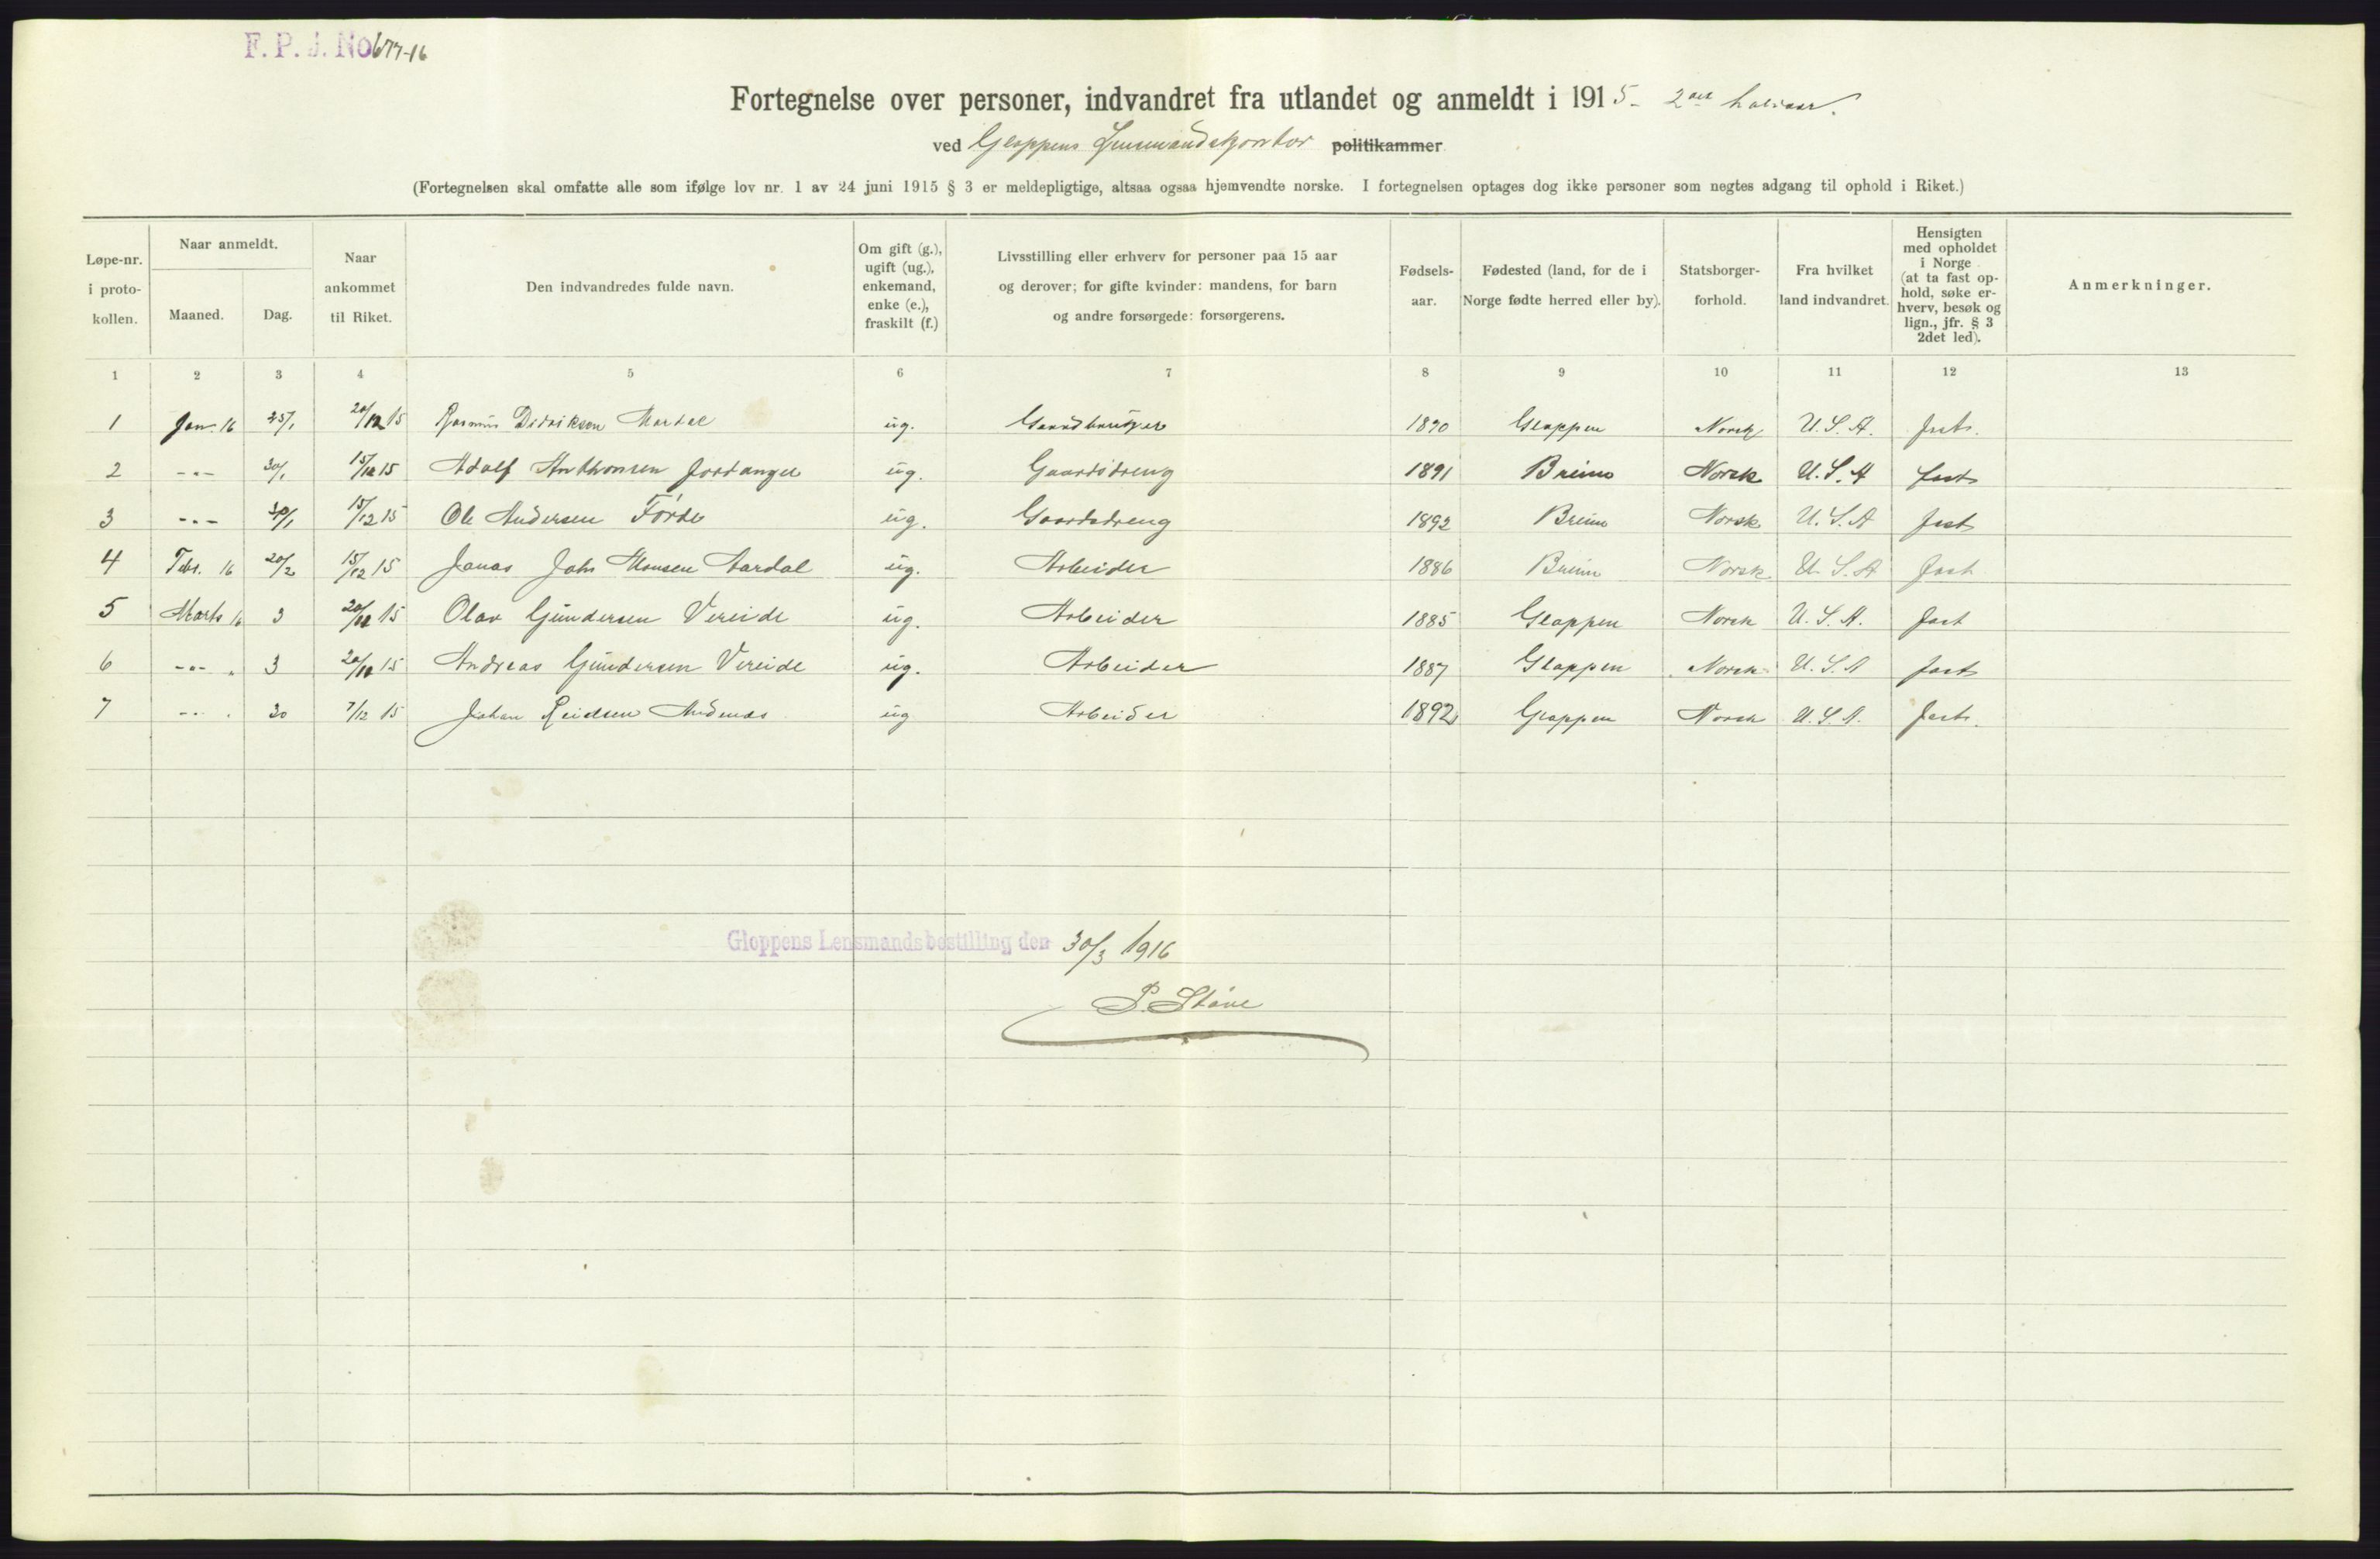 F. P. J. No 677-16
Fortegnelse over personer, indvandret fra utlandet og anmeldt i 1915 - 2det halvaar.
ved Gloppens Lensmandskontor politikammer
(Fortegnelsen skal omfatte alle som ifølge lov nr. 1 av 24 juni 1915 § 3 er meldepligtige, altsaa ogsaa hjemvendte norske. I fortegnelsen optages dog ikke personer som negtes adgang til ophold i Riket.)
Løpe-nr. i proto-kollen.
Naar anmeldt.
Maaned. Dag.
Naar ankommet til Riket.
Den indvandredes fulde navn.
Om gift (g.), ugift (ug.), enkemand, enke (e.), fraskilt (f.)
Livsstilling eller erhverv for personer paa 15 aar og derover; for gifte kvinder: mandens, for barn og andre forsørgede: forsørgerens.
Fødsels-aar.
Fødested (land, for de i Norge fødte herred eller by).
Statsborger-forhold.
Fra hvilket land indvandret.
Hensigten med opholdet i Norge (at ta fast op-hold, søke er-hverv, besøk og lign., jfr. § 3 2det led).
Anmerkninger.
1 2 3 4 5 6 7 8 9 10 11 12 13
1 Jan. 16 25/1 20/12 15 Rasmus Didriksen Mardal ug. Gaardbruger 1890 Gloppen Norsk U. S. A. fast.
2 -"- 30/1 15/12 15 Adolf Anthonsen Jordanger ug. Gaardsdreng 1891 Breim Norsk U. S. A fast
3 -"- 30/1 15/12 15 Ole Andersen Førde ug. Gaardsdreng 1892 Breim Norsk U. S. A fast
4 Febr. 16 20/2 15/12 15 Jonas Monsen Aardal ug. Arbeider 1886 Breim Norsk U. S. A fast
5 Marts 16 3 20/12 15 Olav Gundersen Vereide ug. Arbeider 1885 Gloppen Norsk U. S. A. fast
6 -"- 3 20/10 15 Andreas Gundersen Vereide ug. Arbeider 1887 Gloppen Norsk U. S. A fast
7 -"- 30 7/12 15 Johan Reidsen ug Arbeider 1892 Gloppen Norsk U. S. A. fast.
Gloppens Lensmandsbestilling den 30/3 1916
P. Støve